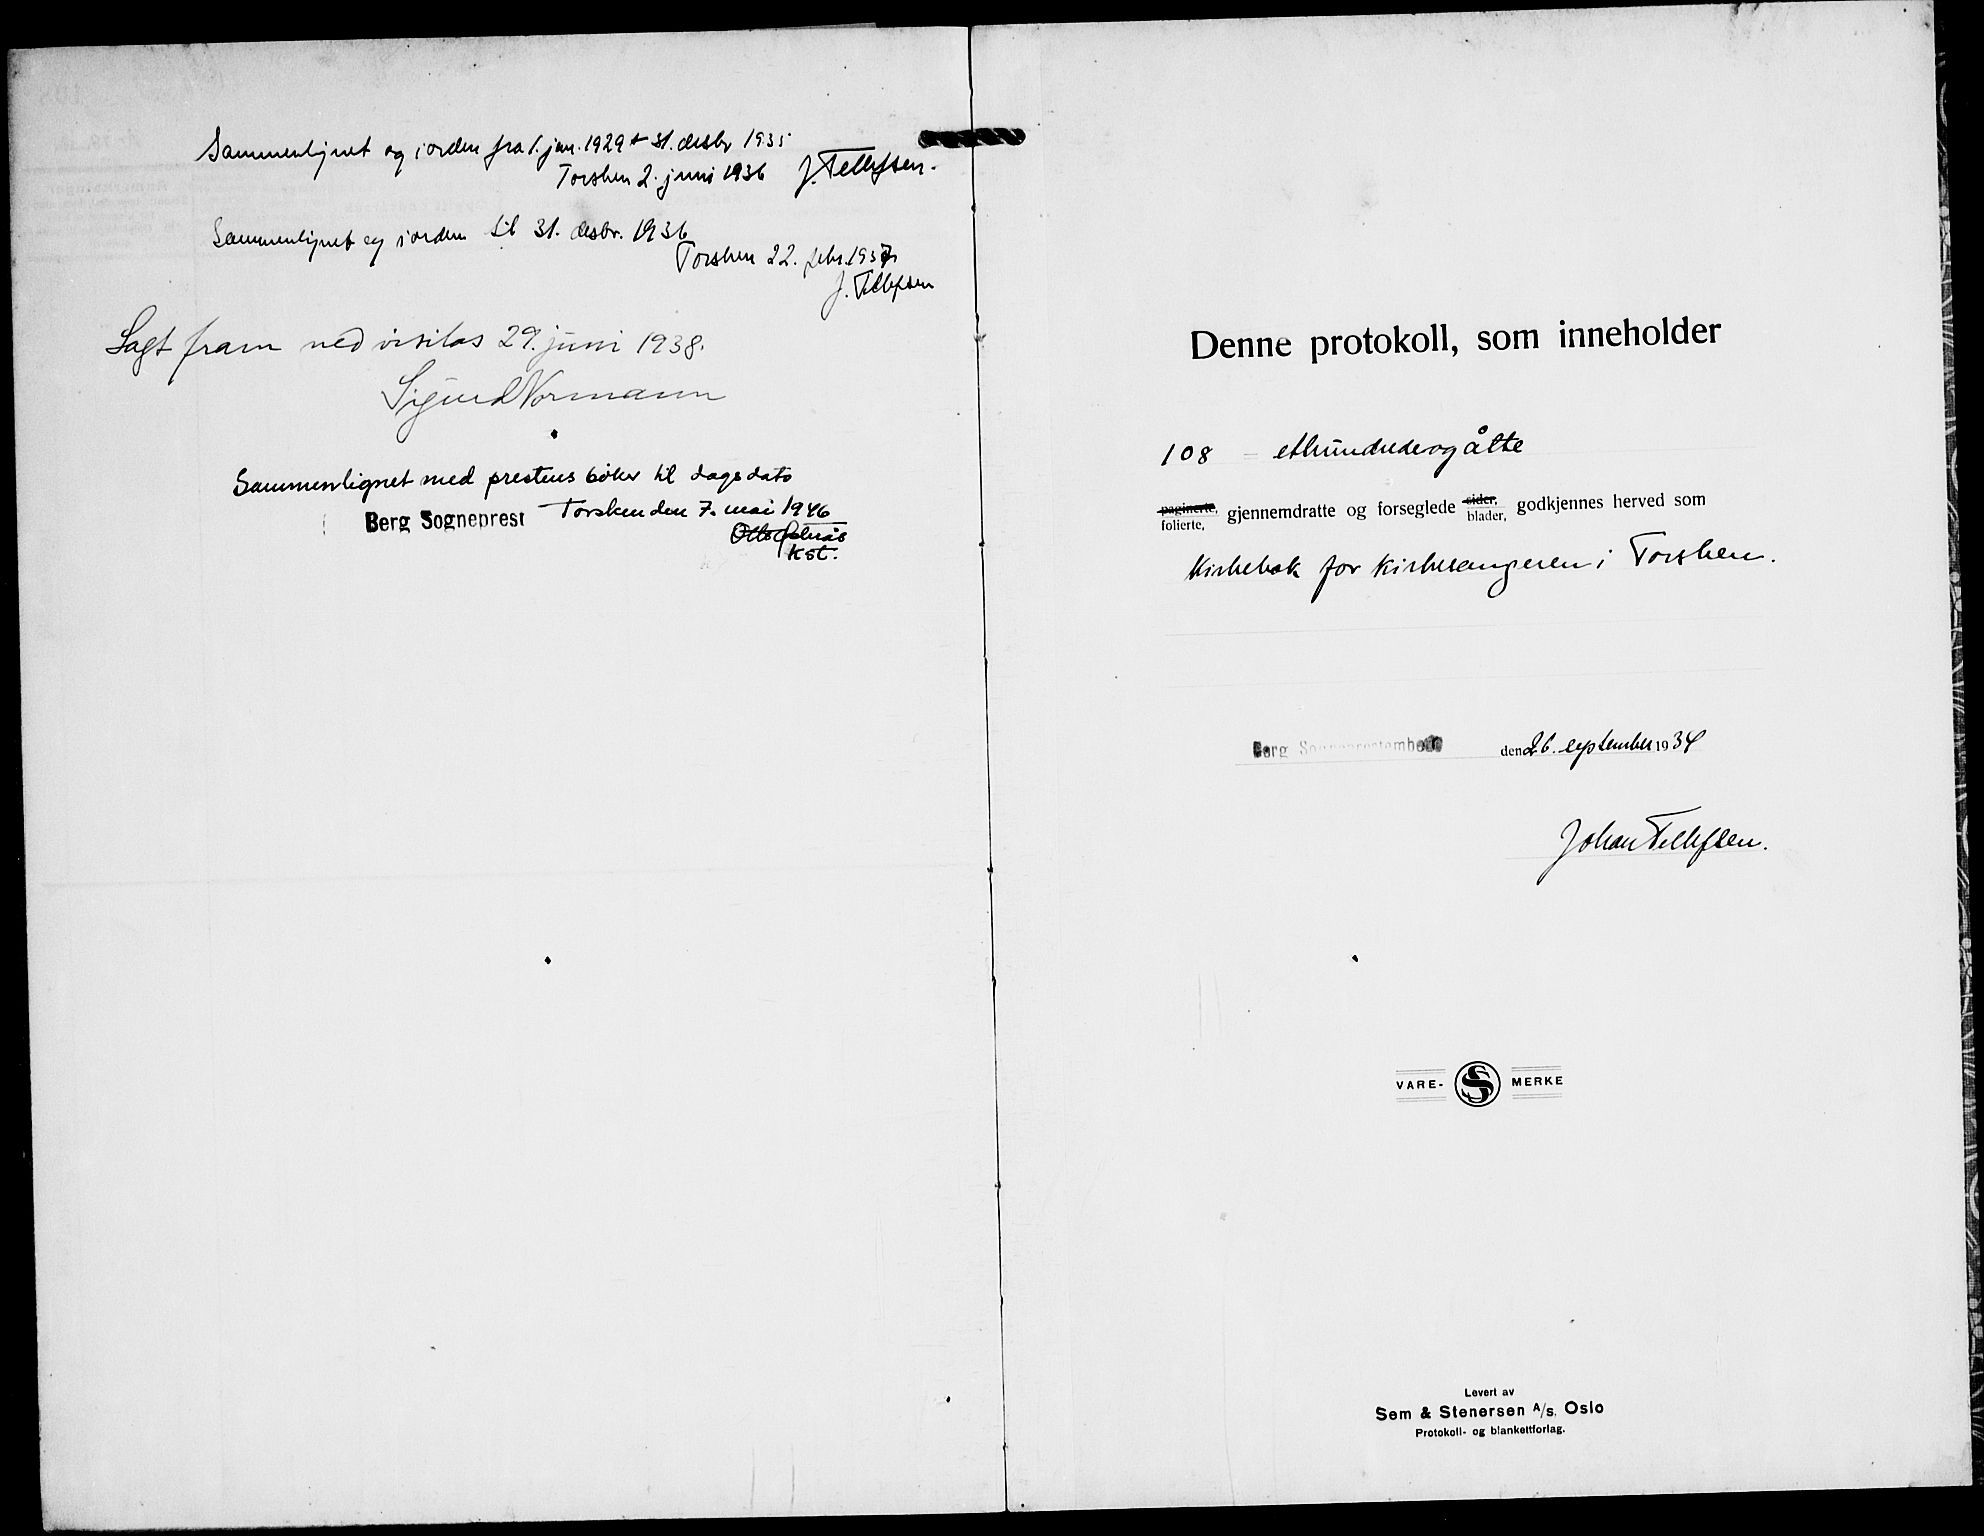 Sammenlignet og i orden fra 1. jan. 1929 t 31. desbr 1935
Torsken 2. juni 1936 J. Tellefsen.
Sammenlignet og i orden til 31. desbr. 1936
Torsken 22. febr. 1937
J. Tellefsen
Lagt fram ved visitas 29. juni 1938.
Sigurd Normann
Sammenlignet med prestens bøker til dags dato
Berg Sogneprest Torsken den 7. mai 1946
Otto
kst.
Denne protokoll, som inneholder
108 – etthundredeogåtte
paginerte, sider,
folierte, gjennemdratte og forseglede blader, godkjennes herved som
Kirkebok for kirkesangeren i Torsken.
Berg Sogneprestembede den 26. september 1934
Johan Tellefsen.
VARE- S MERKE
Levert av
Sem & Stenersen A/s, Oslo
Protokoll- og blankettforlag.